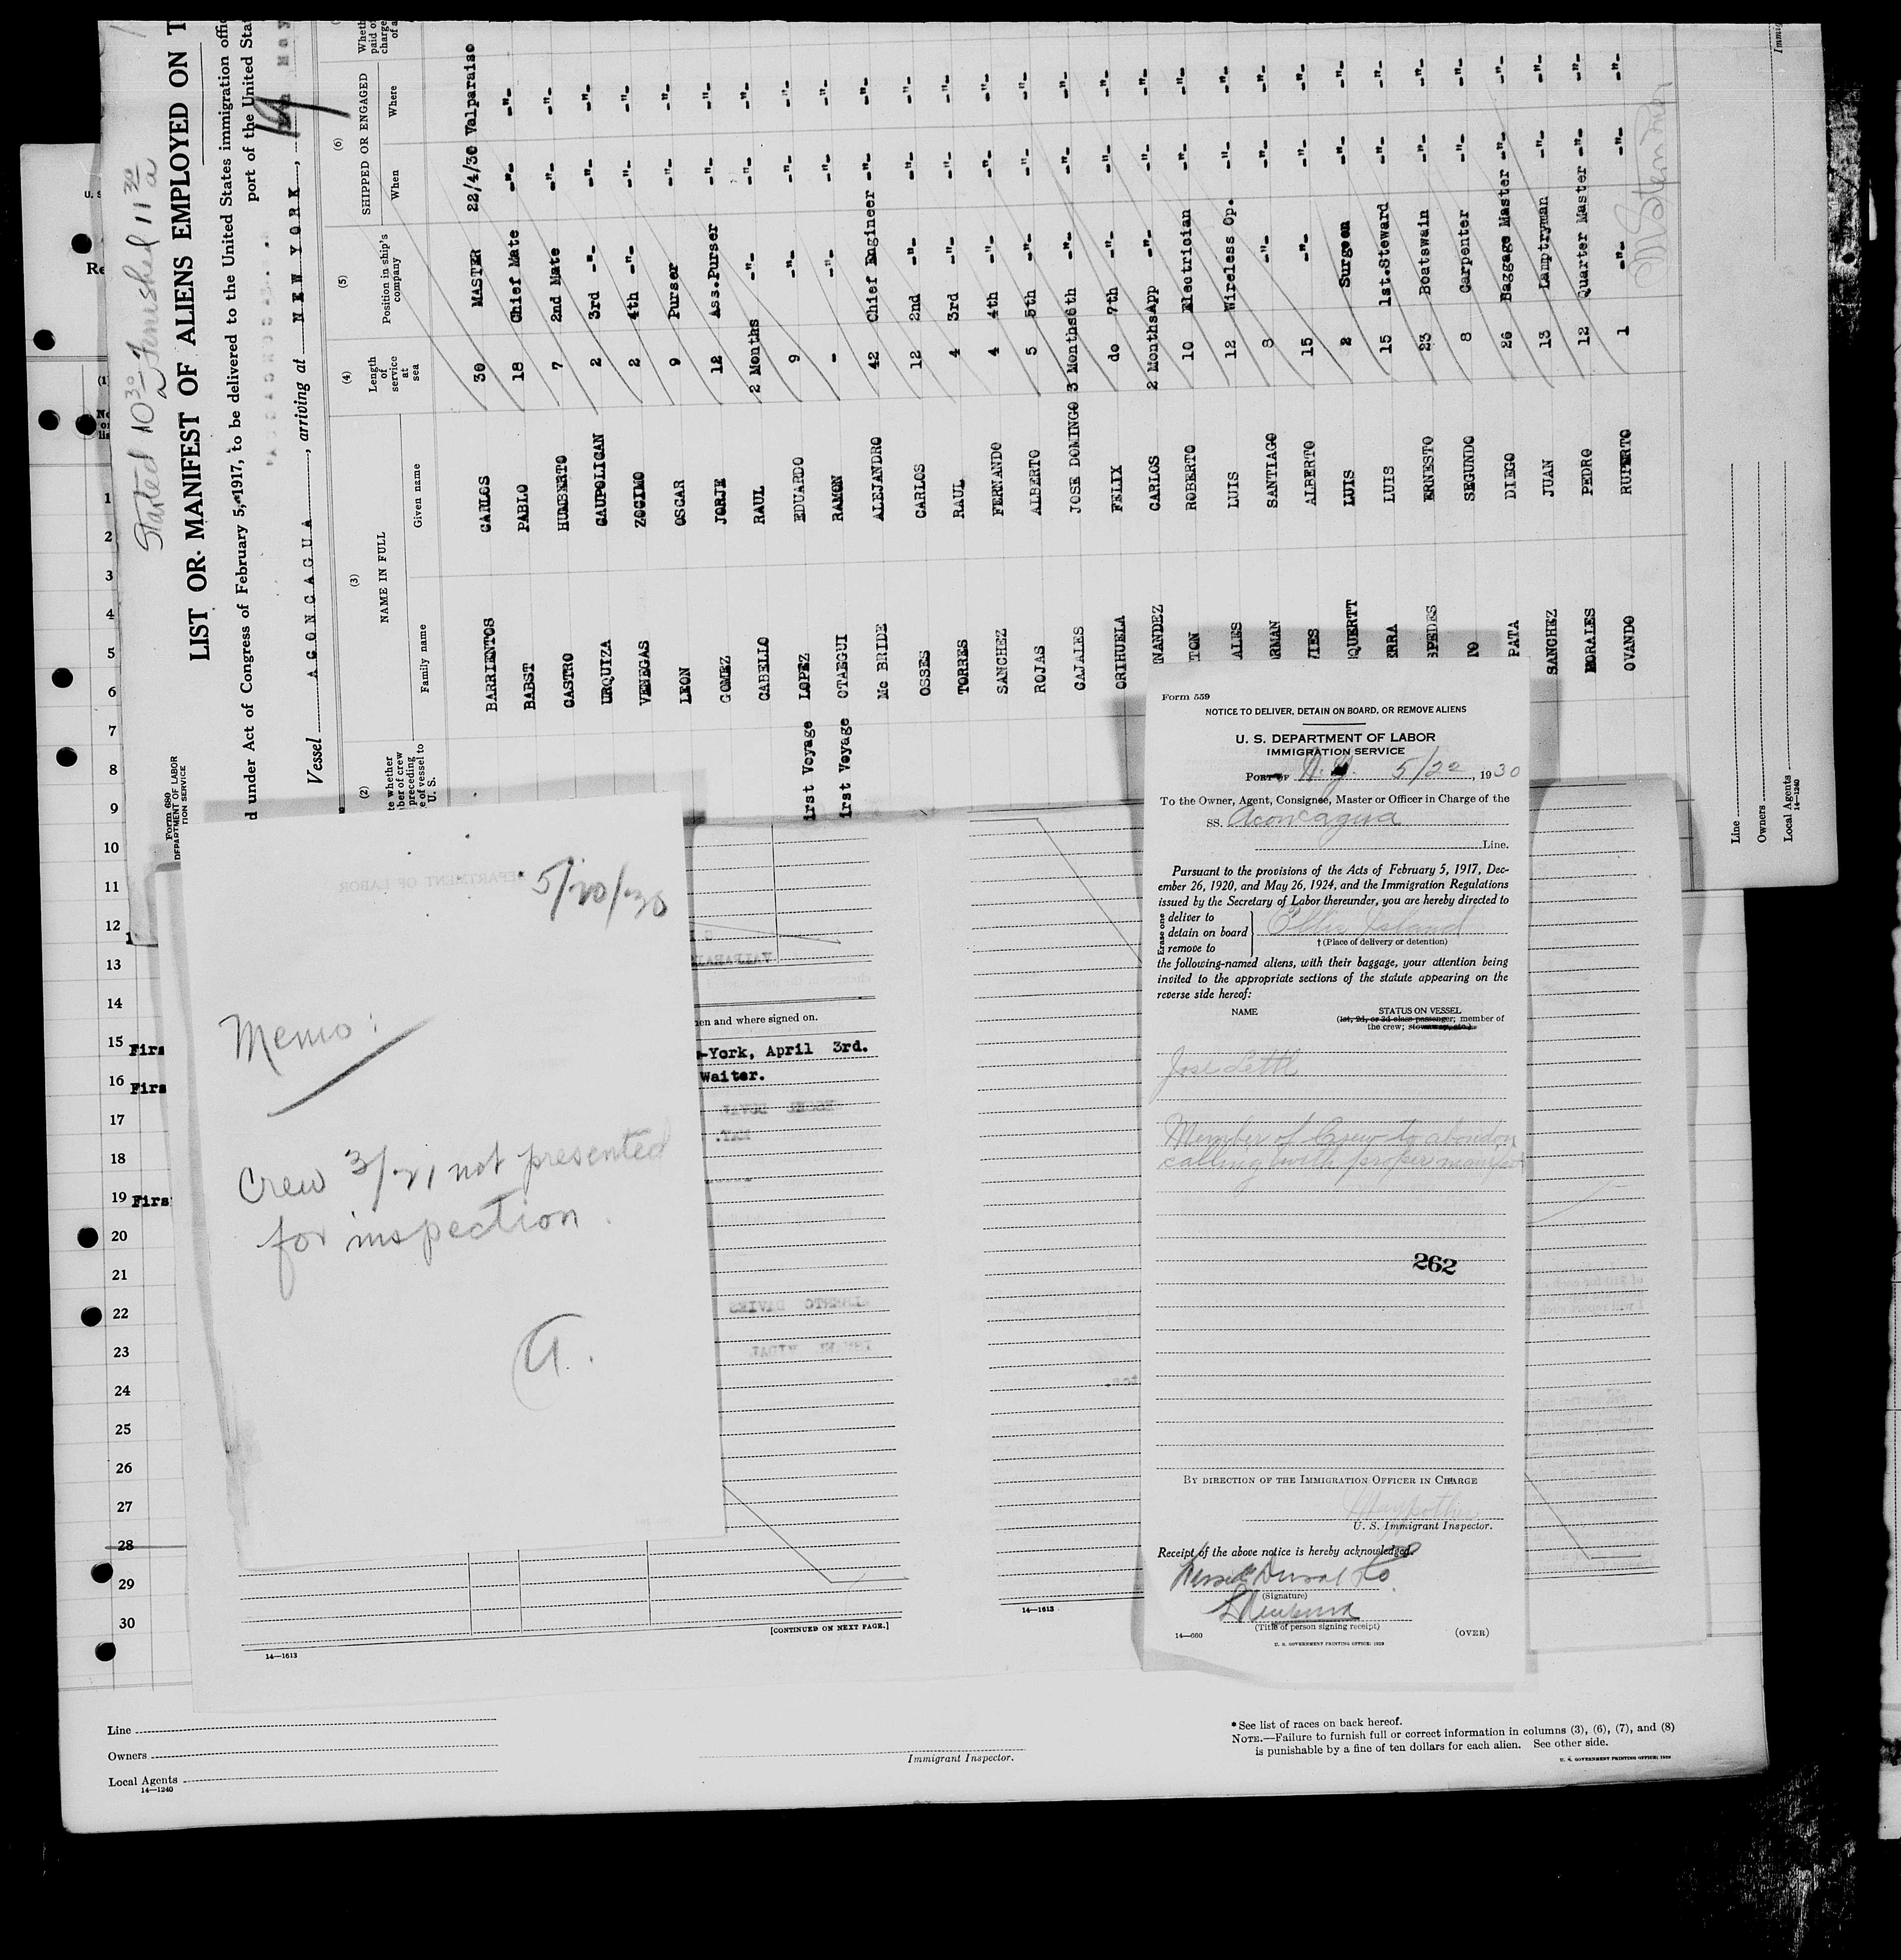 Started 10 30 a Finished 11 30 a
LIST OR MANIFEST OF ALIENS EMPLOYED ON T
d under Act of Congress of February 5, 1917, to be delivered to the United States immigration offi
port of the United Sta
Vessel ACONCAGUA, arriving at NEW YORK, 19
Form 680
DEPARTMENT OF LABOR
TION SERVICE
(2) (3) (4) (5) (6)
NAME IN FULL
Family name Given name
Length of service at sea
Position in ship's company
SHIPPED OR ENGAGED
When Where
BARRIENTOS CARLOS 30 MASTER 22/4/30 Valparaiso
BABST PABLO 18 Chief Mate -"- -"-
CASTRO HUMBERTO 7 2nd Mate -"- -"-
URQUIZA CAUPOLICAN 2 3rd -"- -"- -"-
VENEGAS ZOCIMO 2 4th -"- -"- -"-
LEON OSCAR 9 Purser -"- -"-
GOMEZ JORJE 12 Ass.Purser -"- -"-
CABELLO RAUL 2 Months -"- -"- -"-
irst Voyage LOPEZ EDUARDO 9 -"- -"- -"-
irst Voyage OTAEGUI RAMON - -"- -"- -"-
Mc BRIDE ALEJANDRO 42 Chief Engineer -"- -"-
OSSES CARLOS 12 2nd -"- -"- -"-
TORRES RAUL 4 3rd -"- -"- -"-
SANCHEZ FERNANDO 4 4th -"- -"- -"-
ROJAS ALBERTO 5 5th -"- -"- -"-
CAJALES JOSE DOMINGO 3 Months 6th -"- -"- -"-
ORIHUELA FELIX do 7th -"- -"- -"-
NANDEZ CARLOS 2 Months App -"- -"- -"-
TON ROBERTO 10 Electrician -"- -"-
ALES LUIS 12 Wireless Op. -"- -"-
RMAN SANTIAGO 8 -"- -"- -"-
VIES ALBERTO 15 -"- -"- -"-
QUERTT LUIS 2 Surgeon -"- -"-
ERRA LUIS 15 1st.Steward -"- -"-
SPEDES ERNESTO 23 Boatswain -"- -"-
TO SEGUNDO 8 Carpenter -"- -"-
PATA DIEGO 26 Baggage Master -"- -"-
SANCHEZ JUAN 13 Lamptryman -"- -"-
MORALES PEDRO 12 Quarter Master -"- -"-
OVANDO RUPERTO 1 -"- -"- -"-
Line
Owners
Local Agents
14—1240
1
2
3
4
5
6
7
8
9
10
11
12
13
14
15 Firs
16 Firs
17
18
19 Firs
20
21
22
23
24
25
26
27
28
29
30
5/20/30
Memo:
Crew 3/21 not presented
for inspection.
A.
en and where signed on.
-York, April 3rd.
Waiter.
[CONTINUED ON NEXT PAGE.]
14—1613
14—1613
Form 559
NOTICE TO DELIVER, DETAIN ON BOARD, OR REMOVE ALIENS
U. S. DEPARTMENT OF LABOR
IMMIGRATION SERVICE
PORT OF N.Y. 5/20, 1930
To the Owner, Agent, Consignee, Master or Officer in Charge of the
SS. Aconcagua
Line.
Pursuant to the provisions of the Acts of February 5, 1917, Dec-
ember 26, 1920, and May 26, 1924, and the Immigration Regulations
issued by the Secretary of Labor thereunder, you are hereby directed to
Erase one
deliver to
detain on board Ellis Island
remove to
†(Place of delivery or detention)
the following-named aliens, with their baggage, your attention being
invited to the appropriate sections of the statute appearing on the
reverse side hereof:
NAME STATUS ON VESSEL
(1st, 2d, or 3d class passenger; member of
the crew; stowaway, etc.)
Jose
Member of Crew to abandon
calling with proper manifest
262
BY DIRECTION OF THE IMMIGRATION OFFICER IN CHARGE
U. S. Immigrant Inspector.
Receipt of the above notice is hereby acknowledged.
Duval Co
(Signature)
(Title of person signing receipt)
14—660 (OVER)
U. S. GOVERNMENT PRINTING OFFICE: 1929
Line
Owners
Local Agents
14—1240
Immigrant Inspector.
*See list of races on back hereof.
NOTE.—Failure to furnish full or correct information in columns (3), (6), (7), and (8)
is punishable by a fine of ten dollars for each alien. See other side.
U. S. GOVERNMENT PRINTING OFFICE: 1929